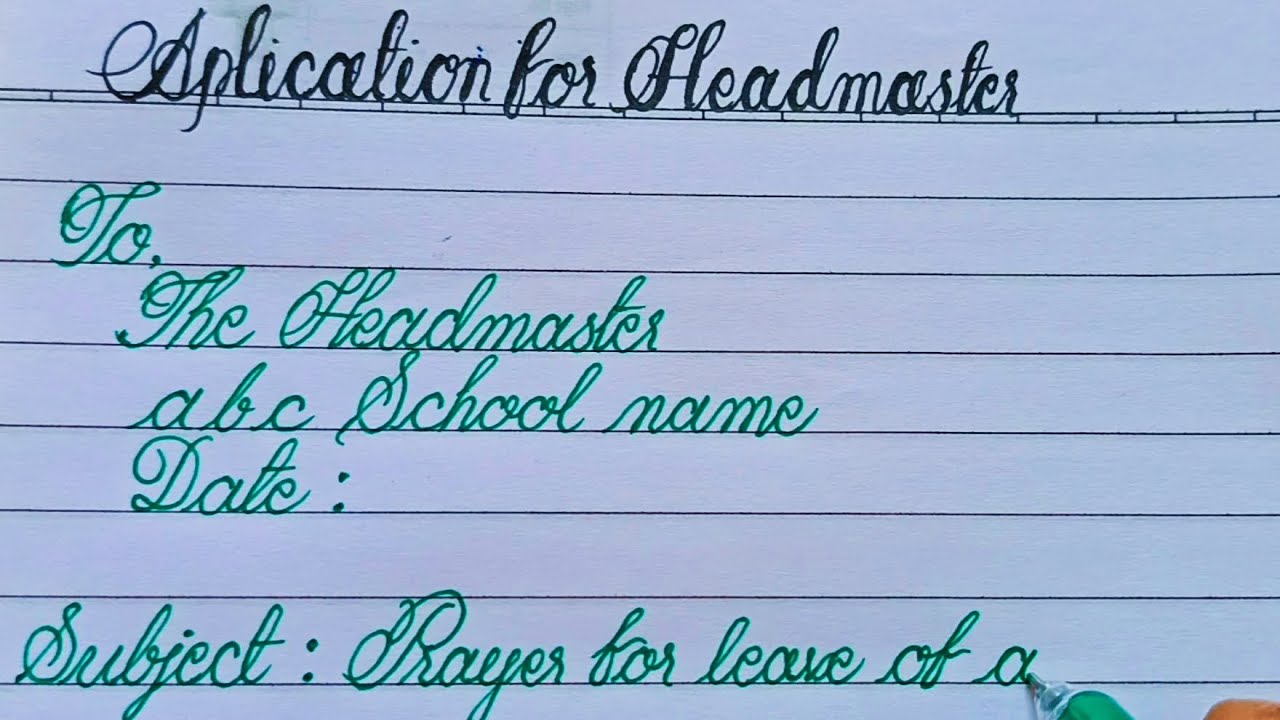 Aplication for Headmaster
To,
The Headmaster
abc School name
Date :
Subject : Prayer for leave of a